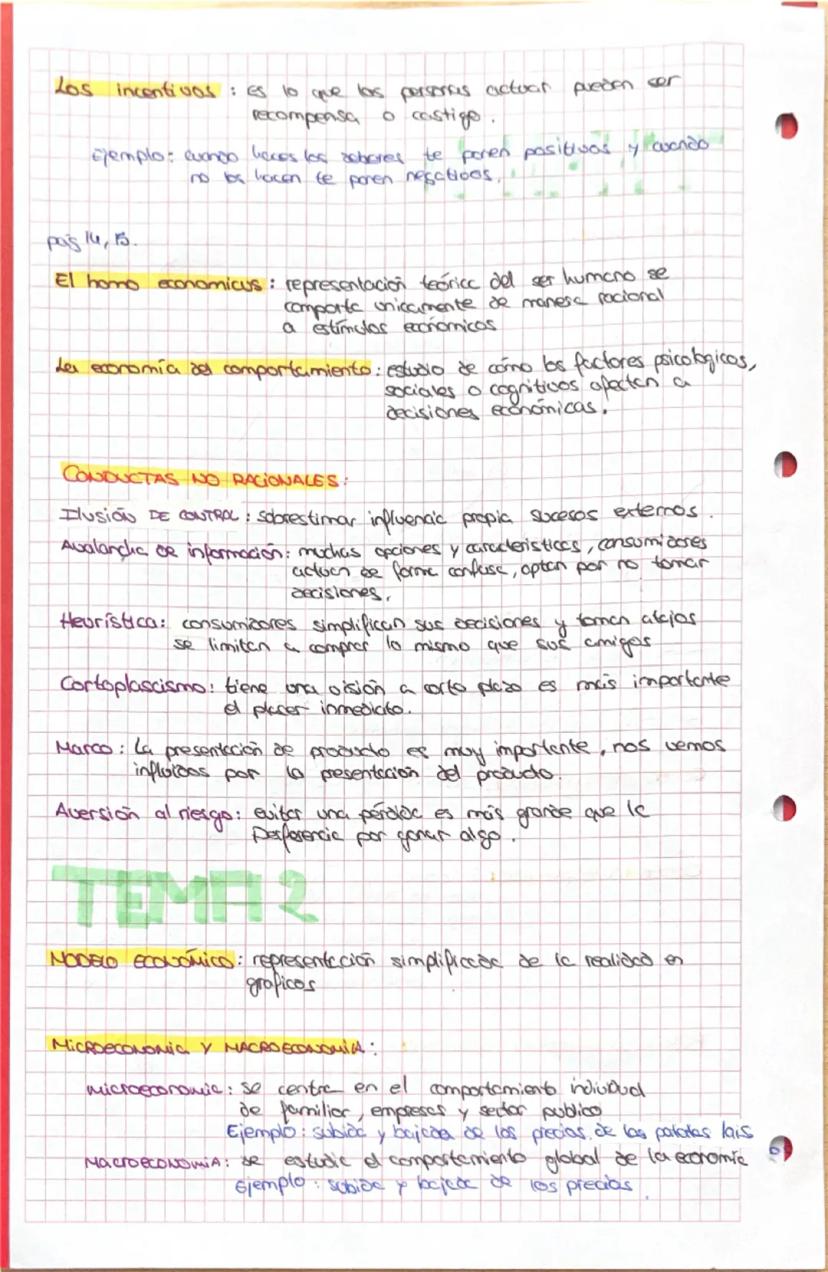 Los incentivos : es lo que las personas actuar pueden ser
recompensa o castigo.
Ejemplo: cuando haces los deberes te ponen positivos y cuando
no los hacen te ponen negativos.
pag 14, 15.
El homo economicus : representación teórica del ser humano se
comporta unicamente de manera racional
a estímulos económicos
La economía del comportamiento : estudio de cómo los factores psicologicos,
sociales o cognitivos afectan a
decisiones económicas.
CONDUCTAS NO RACIONALES:
Ilusión DE CONTROL : sobrestimar influencia propia sucesos externos.
Avalancha de información: muchas opciones y caracteristicas, consumidores
actuan de forma confusa, optan por no tomar
decisiones.
Heurística: consumidores simplifican sus decisiones y toman atajos
se limitan a comprar lo mismo que sus amigos
Cortoplascismo: tiene una visión a corto plazo es más importante
el placer inmediato.
Marco : La presentación de producto es muy importante, nos vemos
influidos por la presentacion del producto.
Aversión al riesgo: evitar una pérdida es más grande que la
Preferencia por ganar algo.
TEMA 2
MODELO ECONÓMICO: representación simplificada de la realidad en
graficos
MICROECONOMIA Y MACROECONOMIA:
microeconomia: se centra en el comportamiento individual
de familiar, empresas y sector publico
Ejemplo: subida y bajada de los precios de las patatas lais
MACROECONOMIA: se estudia el comportamiento global de la economía
Ejemplo: subida y bajada de los precios.